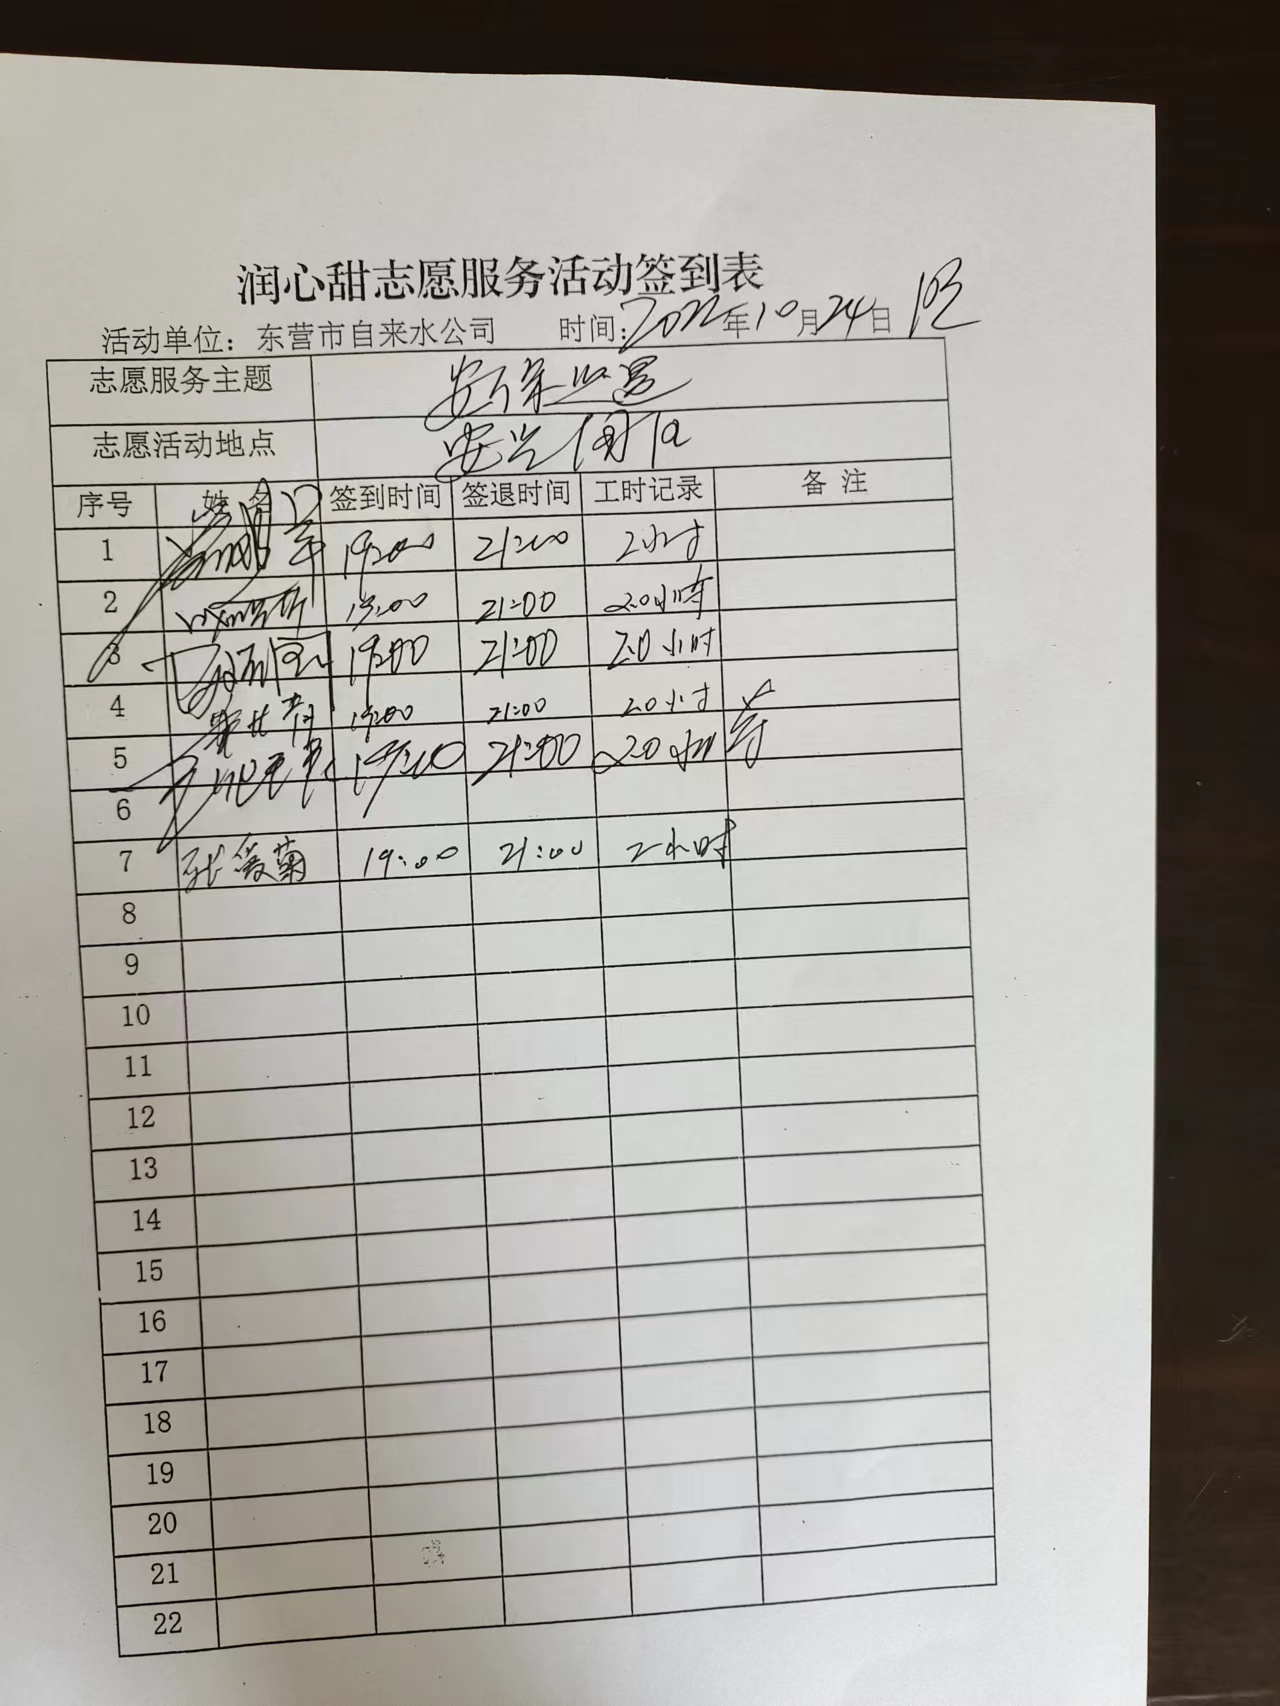 润心甜志愿服务活动签到表
活动单位：东营市自来水公司 时间：2022年10月24日
志愿服务主题 安保巡逻
志愿活动地点 安兴
序号 姓名 签到时间 签退时间 工时记录 备注
1 19:00 21:00 2小时
2 19:00 21:00 2.0小时
3 19:00 21:00 2.0小时
4 19:00 21:00 2.0小时
5 19:00 21:00 2.0小时
6
7 张爱菊 19:00 21:00 2小时
8
9
10
11
12
13
14
15
16
17
18
19
20
21
22